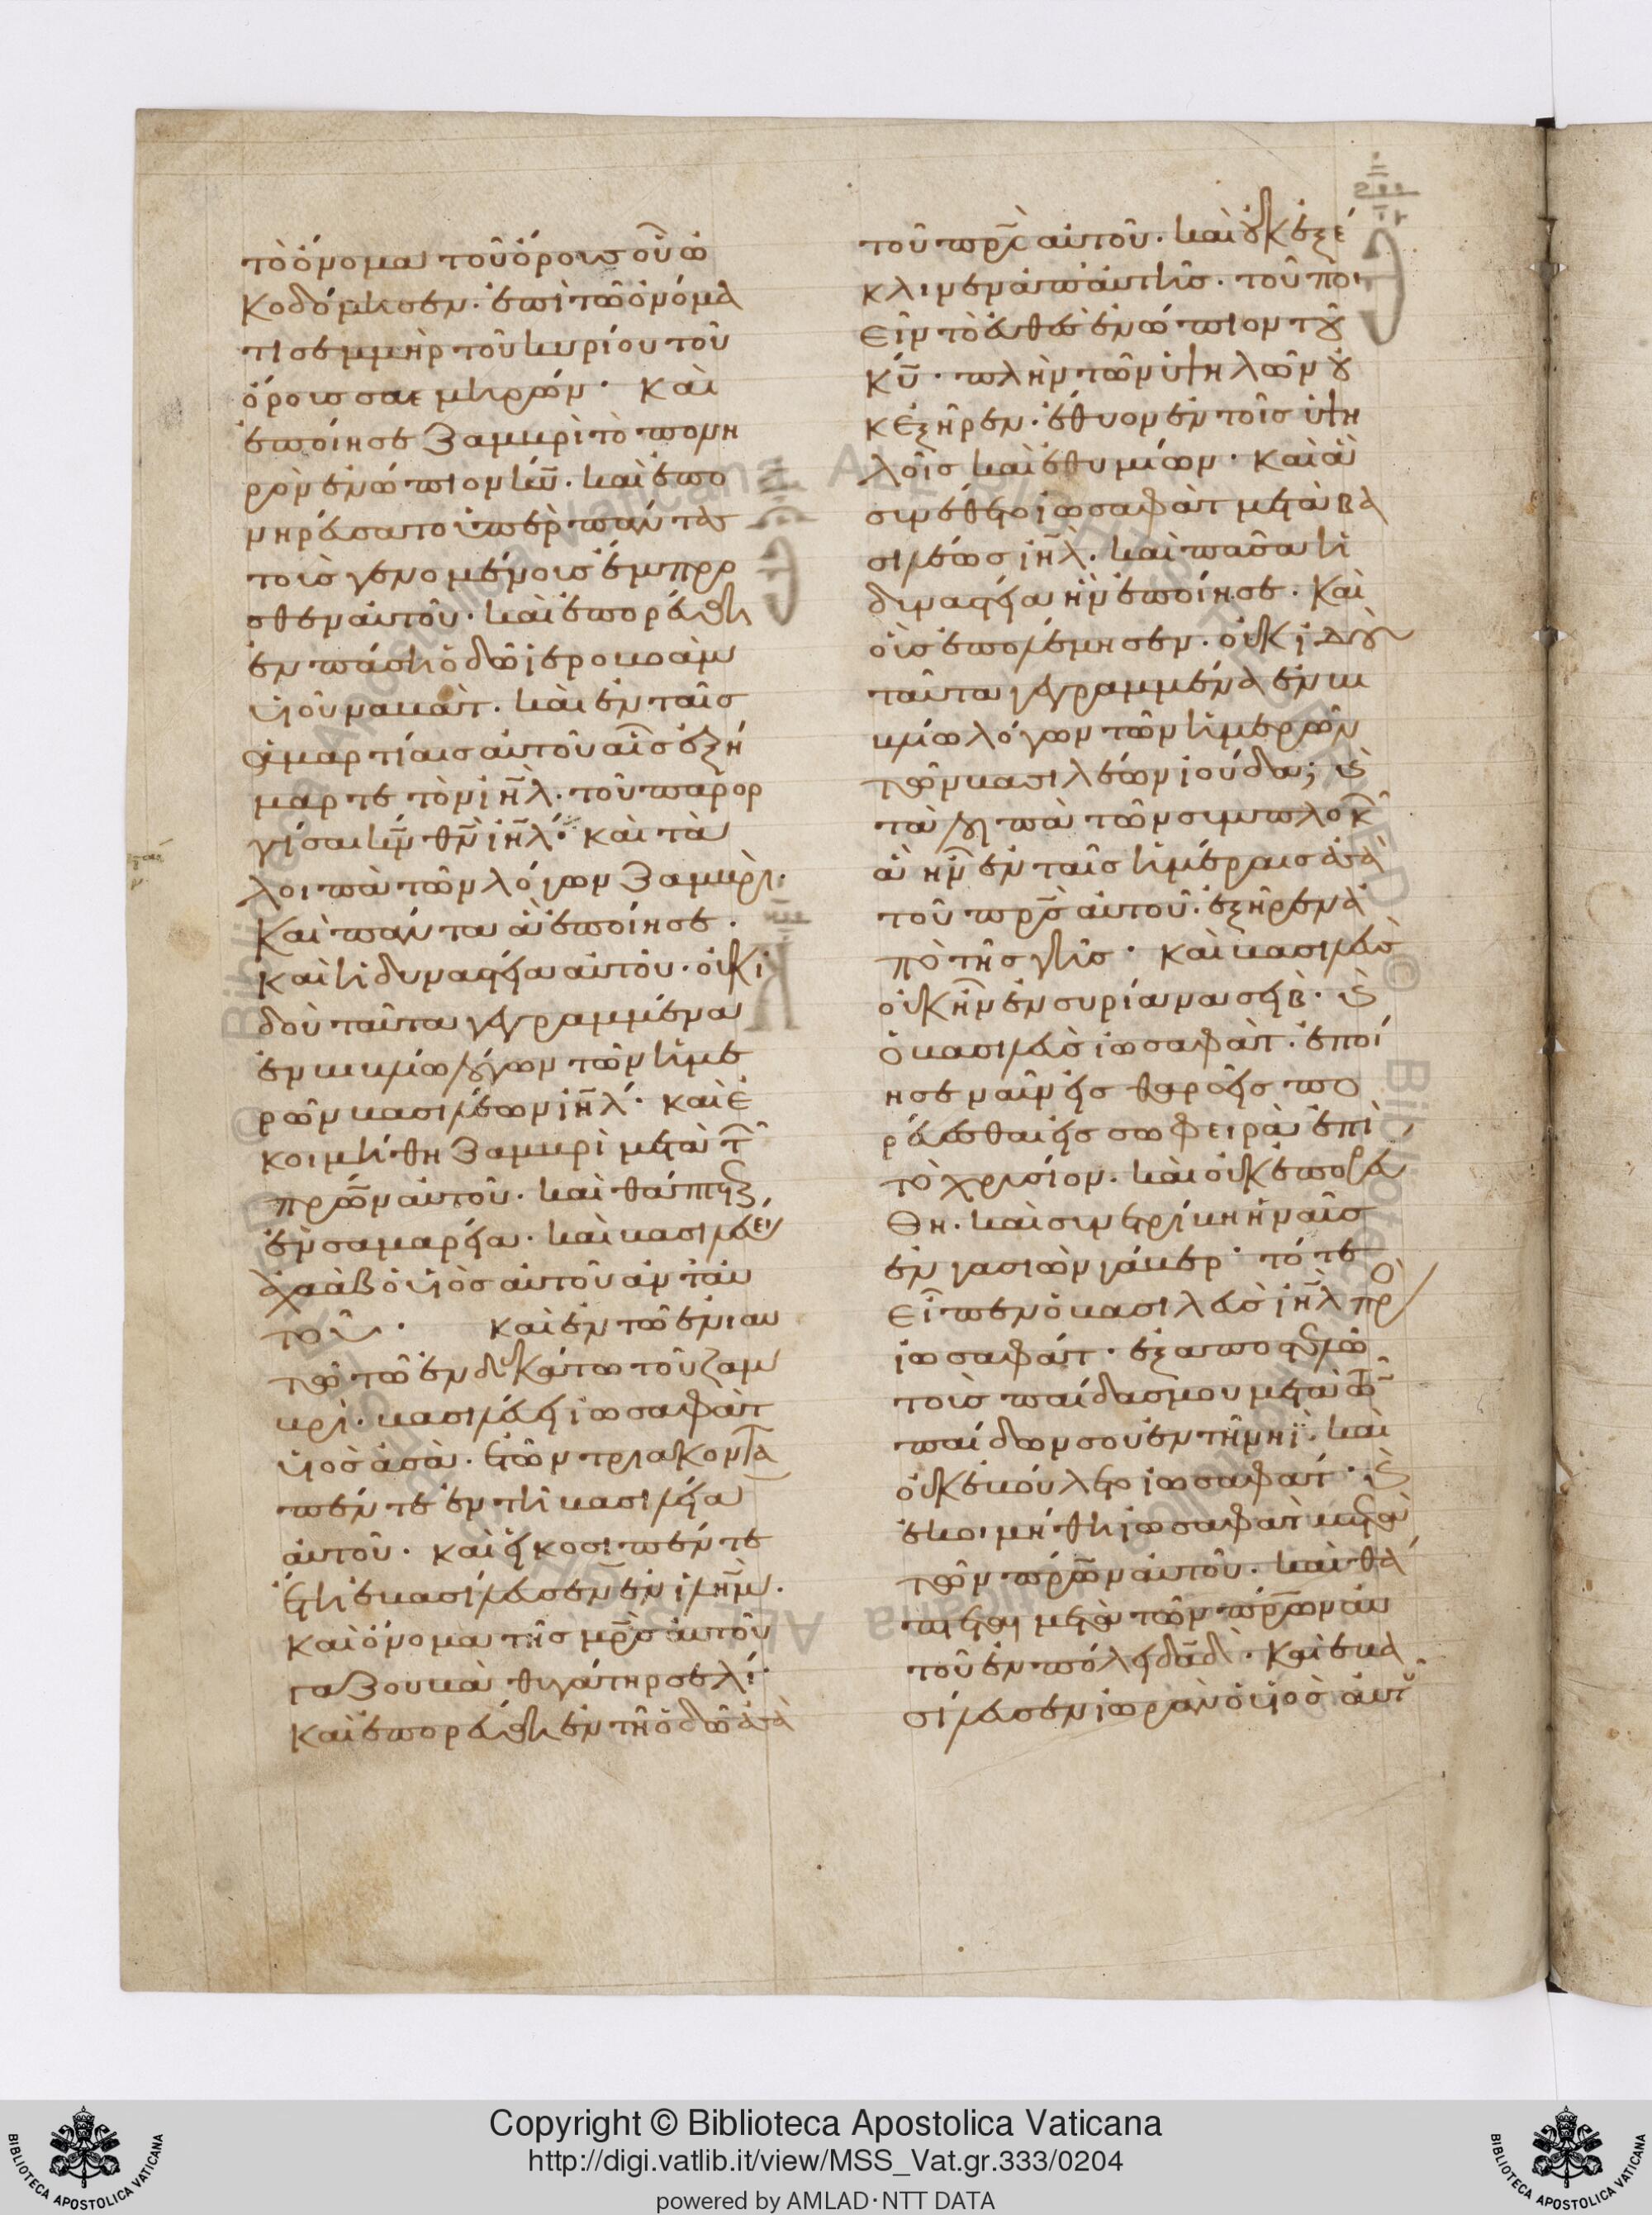 τὸ ὄνομα τοῦ ὄρους οὗ ὠ
κοδόμησεν· ἐπὶ τῶ ὀνόμα
τι σεμμὴρ τοῦ κυρίου τοῦ
ὄρους σαεμηρών· καὶ
ἐποίησε ζαμβρὶ τὸ πονη
ρὸν ἐνώπιον κυ̅· καὶ ἐπο
νηρεύσατο ὑπὲρ πάντας
τοὺς γενομένους ἔμπρο
σθεν αὐτοῦ· καὶ ἐπορεύθη
ἐν πάση ὁδῶ ἱεροβοὰμ
υἱοῦ ναβάτ· καὶ ἐν ταῖς
ἁμαρτίαις αὐτοῦ αἷς ἐξή
μαρτε τὸν ιη̅λ· τοῦ παρορ
γίσαι κν̅ θν̅ ιη̅λ· καὶ τὰ
λοιπὰ τῶν λόγων ζαμβρί·
καὶ πάντα ἃ ἐποίησε·
καὶ ἡ δυναστεία αὐτοῦ· οὐκ ἰ
δοὺ ταῦτα γεγραμμένα
ἐν βιβλίω λόγων τῶν ἡμε
ρῶν βασιλέων ιη̅λ· καὶ ἐ
κοιμήθη ζαμβρὶ μετὰ τ
πρω̅ν αὐτοῦ· καὶ θάπτεται
ἐν σαμαρεία· καὶ βασιλεύει
ἀχαὰβ ὁ υἱὸς αὐτοῦ ἀντ' αὐ
τοῦ· καὶ ἐν τῶ ἐνιαυ
τῶ τῶ ἑνδεκάτω τοῦ ζαμ
βρί· βασιλεύει ἰωσαφὰτ
υἱὸς ἀσά· ἐτῶν τριακοντα
πέντε ἐν τῆ βασιλεία
αὐτοῦ· καὶ εἴκοσι πέντε
ἔτη ἐβασίλευσεν ἐν ιλη̅μ·
καὶ ὄνομα τῆς μρ̅ς αὐτοῦ
γαζουβὰ θυγάτηρ σελί·
καὶ ἐπορεύθη ἐν τῆ ὁδῶ ἀσὰ
τοῦ πρ̅ς αὐτοῦ· καὶ οὐκ ἐξέ
κλινεν ἀπ' αὐτῆς· τοῦ ποι
εῖν τὸ εὐθὲς ἐνώπιον τοῦ
κυ̅· πλὴν τῶν ὑψηλῶν οὐ
κ ἐξῆρεν· ἔθυον ἐν τοῖς ὑψη
λοῖς καὶ ἐθυμίων· καὶ ἃ
συνέθετο ἰωσαφὰτ μετὰ βα
σιλέως ιη̅λ· καὶ πᾶσα ἡ
δυναστεία ἣν ἐποίησε· καὶ
οὓς ἐπολέμησεν· οὐκ ἰδοὺ
ταῦτα γεγραμμένα ἐν βι
βλίω λόγων τῶν ἡμερῶν
τῶν βασιλέων ἰούδα; καὶ
τὰ λοιπὰ τῶν συμπλοκ
ἃ ἦν ἐν ταῖς ἡμέραις ἀσὰ
τοῦ πρ̅ς αὐτοῦ· ἐξῆρεν ἀ
πὸ τῆς γῆς· καὶ βασιλεὺς
οὐκ ἦν ἐν συρία νασείβ· καὶ
ὁ βασιλεὺς ἰωσαφάτ· ἐποί
ησε ναῦν εἰς θαρσεῖς πο
ρεύεσθαι εἰς σωφειρὰ ἐπὶ
τὸ χρυσίον· καὶ οὐκ ἐπορεύ
θη· καὶ συνετρίβη ἡ ναῦς
ἐν γασιὼν γάβερ· τότε
εἶπεν ὁ βασιλεὺς ιη̅λ πρὸς
ἰωσαφάτ· ἐξαποστελῶ
τοὺς παῖδας μου μετὰ τῶν
παίδων σου ἐν τῆ νηΐ· καὶ
οὐκ ἐβούλετο ἰωσαφάτ· καὶ
ἐκοιμήθη ἰωσαφὰτ μετὰ
τῶν πρω̅ν αὐτοῦ· καὶ θά
πτεται μετὰ τῶν πρω̅ν αὐ
τοῦ ἐν πόλει δα̅δ· καὶ ἐβα
σίλευσεν ἰωρὰμ ὁ υἱὸς αὐτοῦ
Copyright © Biblioteca Apostolica Vaticana
http://digi.vatlib.it/view/MSS_Vat.gr.333/0204
powered by AMLAD·NTT DATA
BIBLIOTECA APOSTOLICA VATICANA
BIBLIOTECA APOSTOLICA VATICANA